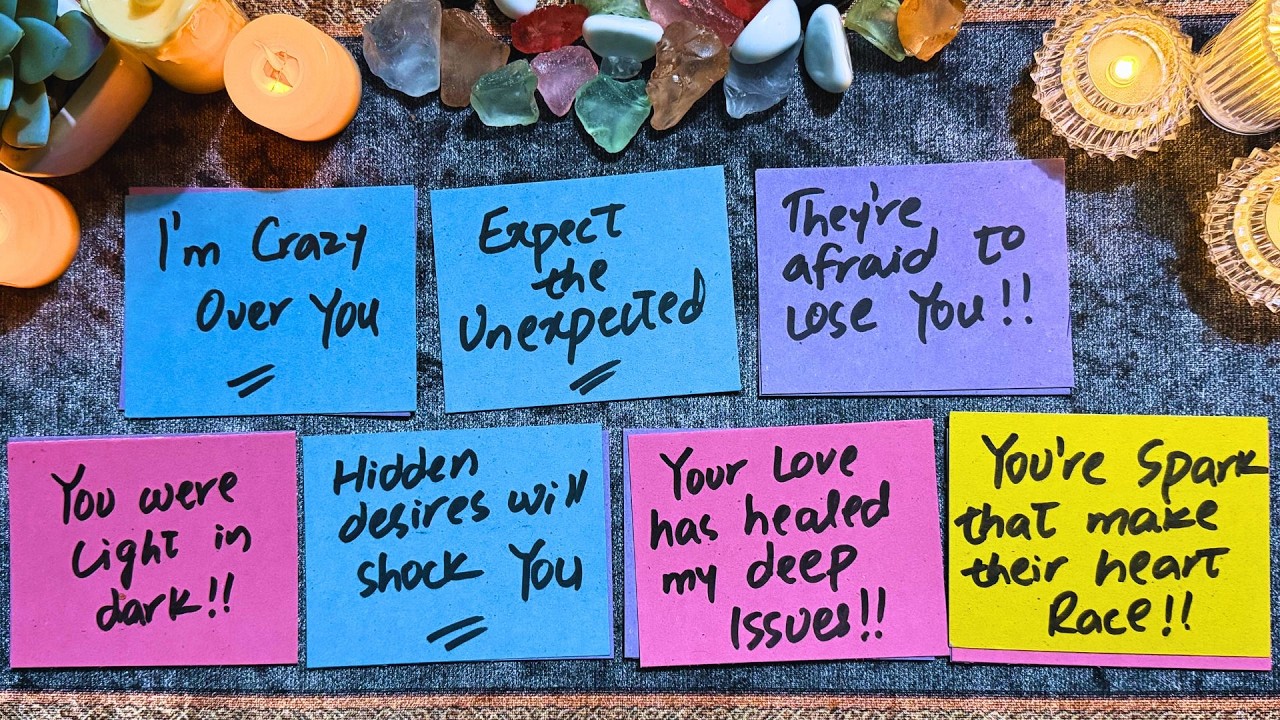 I'm Crazy
Over You
Expect
the
Unexpected
They're
afraid to
Lose You!!
You were
Light in
dark!!
Hidden
desires will
shock You
Your Love
has healed
my deep
Issues!!
You're Spark
that make
their heart
Race!!